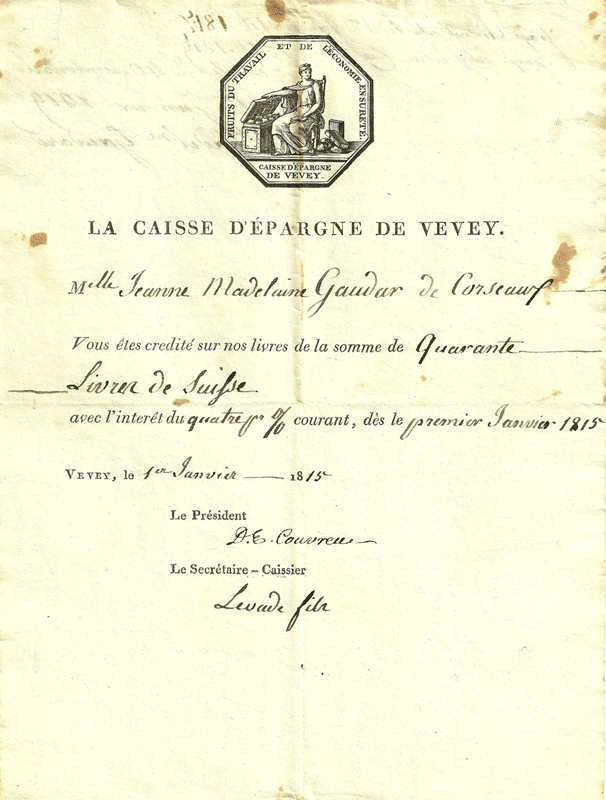 FRUITS DU TRAVAIL ET DE L'ÉCONOMIE EN SURETÉ.
CAISSE D'ÉPARGNE
DE VEVEY.
LA CAISSE D'ÉPARGNE DE VEVEY.
Melle Jeanne Madelaine Gaudar de Corseaux
Vous êtes credité sur nos livres de la somme de Quarante
Livres de Suisse
avec l'interét du quatre pr % courant, dès le premier Janvier 1815
VEVEY, le 1er Janvier 1815
Le Président
D. E. Couvreu
Le Secrétaire - Caissier
Levade fils